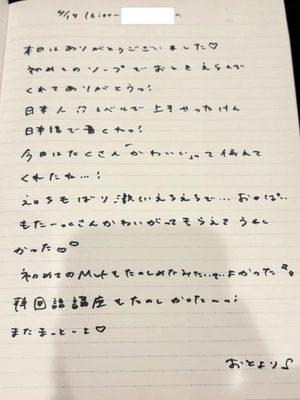 4/19 16:00〜
本日はありがとうございました♡
初めてのソープでおとをえらんで
くれてありがとうっ!
日本人!?レベルで上手やったけん
日本語で書くわっ!
今日はたくさん「かわいい」って伝えて
くれたね…!
もたーっくさんかわいがってもらえてうれし
かった♡♡
初めてのMatもたのしめたみたいでよかった
韓国語講座もたのしかった〜っ!
またまっとーよ♡
おとより